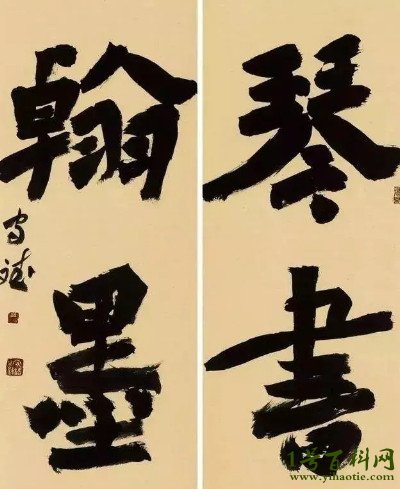 琴書
翰墨
1号百科网
www.ymaotie.com